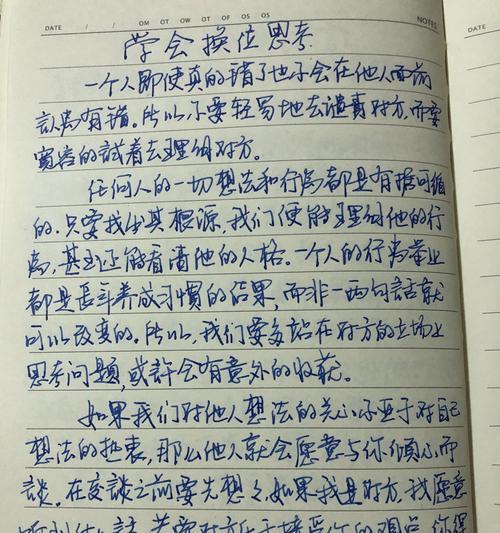 DATE / / MO TU WE TH FR SA SU NOTES
DATE
学会换位思考
一个人即使真的错了也不会在他人面前
认为有错。所以不要轻易地去谴责对方,而要
宽容的试着去理解对方。
任何人的一切想法和行为都是有据可循
的.只要找出其根源,我们便能理解他的行
为,甚至还能看清他的人格。一个人的行为
都是长年养成习惯的结果,而非一两句話就
可以改变的。所以,我们要多站在对方的立场上
思考问题,或許会有意外的收获。
如果我们对他人想法的关心不亚于对自己
想法的热衷,那么他人就会愿意与你傾心而
談.在交谈之前要先想想,如果我是对方,我愿意
話 若